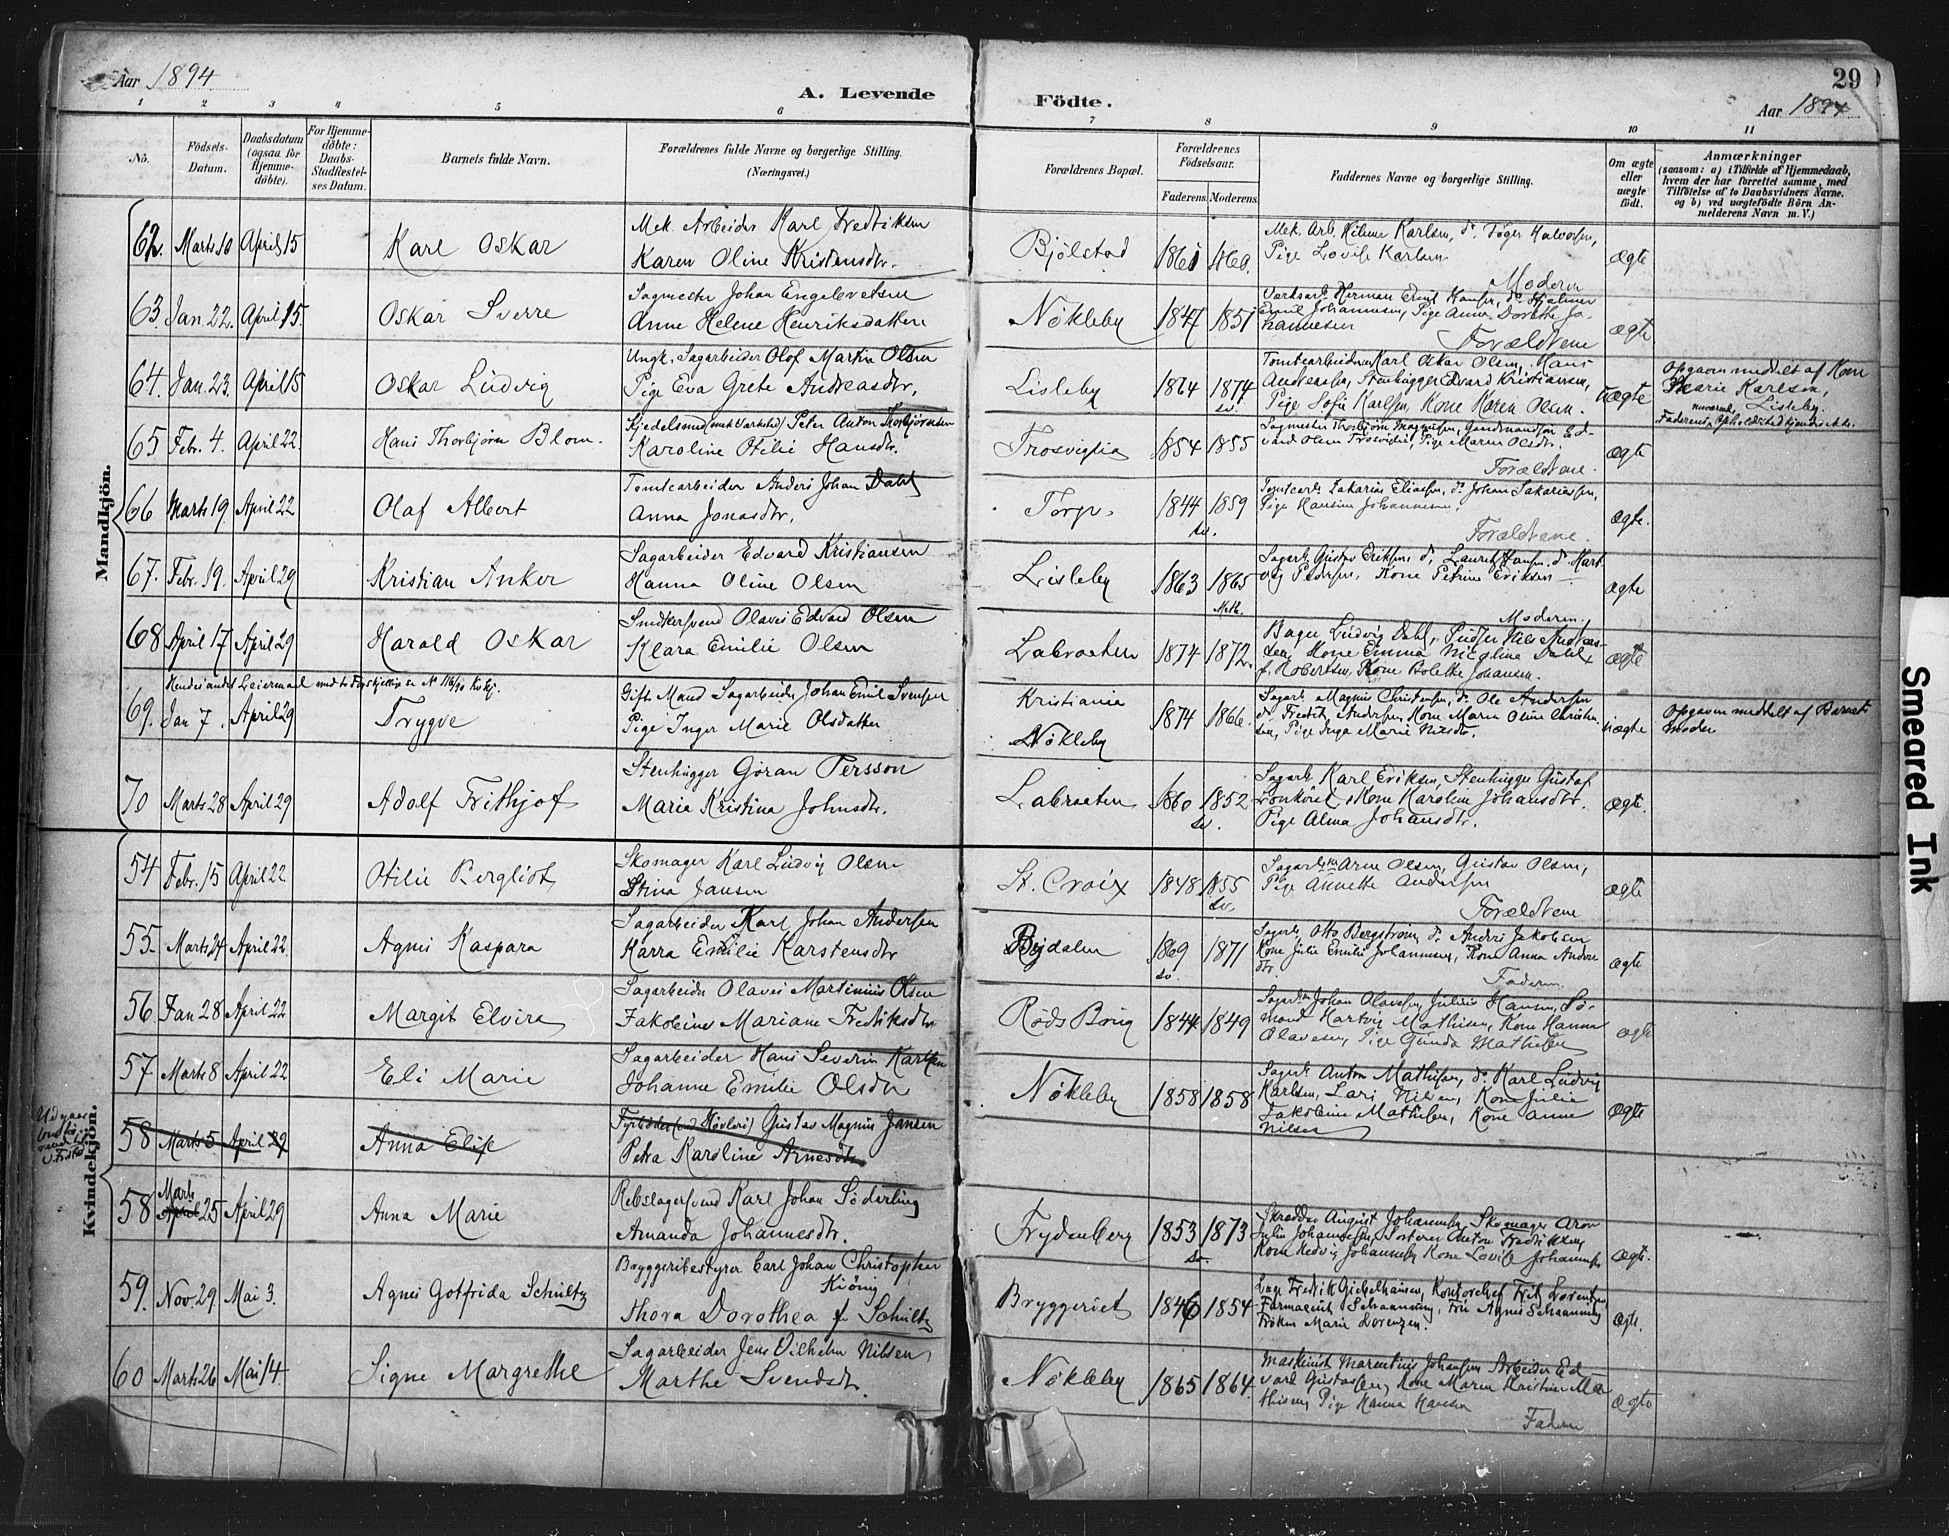 Aar 1894
A. Levende Födte.
29
Aar 1894
1 2 3 4 5 6 7 8 9 10 11
No.
Födsels-Datum.
Daabsdatum (ogsaa for Hjemme-döbte).
For Hjemme-döbte: Daabs-Stadfestel-ses Datum.
Barnets fulde Navn.
Forældrenes fulde Navne og borgerlige Stilling. (Næringsvei.)
Forældrenes Bopæl.
Forældrenes Födselsaar.
Faderens Moderens
Faddernes Navne og borgerlige Stilling.
Om ægte eller uægte födt.
Anmærkninger
(saasom: a) i Tilfælde af Hjemmedaab, hvem der har forrettet samme, med Tilföielse af to Daabsvidners Navne. og b) ved uægtefödte Börn An-melderens Navn m. V.)
Mandkjön.
62. Marts 10 April 15 Karl Oskar
Mek. Arbeider Karl Fredriksen
Karen Oline Kristensdtr.
Bjölstad 1861 1860.
Mek. Arb. Hilmar Karlsen, do Töger Halvorsen,
Pige Lovise Karlsen
Moderen
ægte
63. Jan. 22. April 15. Oskar Sverre
Sagmester Johan Engelbretsen
Anne Helene Henriksdatter
Nökleby 1847 1851
Værksarb. Herman Emil Hansen, do Hjalmar
Emil Johannesen, Pige Anna Dorthe Jo-
hannesen
Forældrene
ægte
64. Jan. 23. April 15 Oskar Ludvig
Ungk. Sagarbeider Olof Martin Olsen
Pige Eva Grete Andreasdtr.
Lisleby 1864 1874 sv.
Tomtearbeiderne Karl Oskar Olsen, Hans
Andreasen, Stenhugger Edvard Kristiansen,
Pige Sofie Karlsen, Kone Karen Olsen.
uægte
Opgaven meddelt af Kone
Marie Karlsen,
Lisleby.
Faderens nuværende Opholdsted kjendes ikke.
65 Febr. 4. April 22. Hans Thorbjörn Blom.
Kjedelsmed (mek Værksted) Peter Anton Thorbjörnsen
Karoline Otilie Hansdtr.
Trosvigtia 1854 1855
Sagmester Thorbjörn Magnusen, Gaardmandssön Ed-
vard Olsen Trosvigtia, Pige Maren Olsdtr.
Forældrene.
ægte
66 Marts 19. April 22 Olaf Albert
Tomtearbeider Anders Johan Dahl
Anna Jonasdtr.
Torp. 1844 sv. 1859
Tomtearb. Zakarias Eliassen, do Johan Sakariassen,
Pige Hansine Johannesen.
Forældrene.
ægte.
67. Febr. 19. April 29 Kristian Anker
Sagarbeider Edvard Kristiansen
Hanna Oline Olsen
Lisleby 1863 1865 Meth.
Sagarb. Gustav Eriksen, do Laurits Hansen, do Hart-
vig Pedersen, Kone Petrine Eriksen
Moderen.
ægte
68 April 17 April 29 Harald Oskar
Snedkersvend Olaves Edvard Olsen
Klara Emilie Olsen
Labraaten 1874 1872.
Bager Ludvig Dahl, Pudser Nils Andreas-
sen, Kone Emma Nicoline Dahl
f. Robertsen, Kone Bolette Johansen.
ægte
Hendes andet Leiermaal
69. Jan 7. April 29 Trygve
Gift Mand Sagarbeider Johan Emil Svensen
Pige Inger Marie Olsdatter
Kristiania
Nökleby 1874 1866.
Sagarb. Magnus Christensen, do Ole Andersen
do Fredrik Andersen, Kone Maren Oline Christen-
sen, Pige Inga Marie Nilsdtr.
uægte
Opgaven meddelt af Barnets
Moder
70 Marts 28 April 29 Adolf Frithjof
Stenhugger Göran Persson
Maria Kristina Johnsdtr.
Labraaten 1860 sv. 1852
Sagarb. Karl Eriksen, Stenhugger Gustaf
Kone Karoline Johansdtr.
Pige Alma Johansdtr.
ægte.
Kvindekjön.
54 Febr. 15 April 22 Otilie Bergliot
Skomager Karl Ludvig Olsen
Stina Jansen
St. Croix 1848 1855 sv.
Sagarb. Arne Olsen, Gustav Olsen,
Pige Annette Andersen
Forældrene
ægte
55. Marts 24 April 22. Agnes Kaspara
Sagarbeider Karl Johan Andersen
Karra Emilie Karstensdtr
Bydalen 1869 sv. 1871
Sagarb. Otto Bergström, do Anders Jakobsen
Kone Julie Emilie Johannesen, Kone Anna Anders-
dtr.
Faderen.
ægte
56 Jan 28 April 22 Margit Elvira
Sagarbeider Olaves Martinius Olsen
Jakobine Mariane Fredriksdtr
Röds Brug 1844 1849
Sagarb. Johan Olavesen, Julius Hansen, Sö-
mand Hartvig Mathisen, Kone Hanna
Olavesen, Pige Gunda Mathisen
ægte
57 Marts 8 April 22 Eli Marie
Sagarbeider Hans Severin Karlsen
Johanne Emilie Olsdtr
Nökleby 1858 1858
Sagarb. Anton Mathisen, do Karl Ludvig
Karlsen, Lars Nilsen, Kone Julie
Jakobine Mathisen, Kone Anne
Nilsen
ægte
58 Marts 5 April 29 Anna Elise
Fyrböder (ved Hövleri) Gustav Magnus Jansen
Petra Karoline Arnesdtr
58 Marts April 25 April 29 Anna Marie
Rebslagersvend Karl Johan Söderling
Amanda Johannesdtr.
Frydenberg 1853 sv. 1873
Skrædder August Johannesen, Skomager Aron
Julin Johannesen, Anton Fredriksen,
Kone Hedvig Johannesen, Kone Lovise Johannesen
ægte.
59. Nov. 29. Mai 3. Agnes Gotfrida Schultz
Bryggeribestyrer Carl Johan Christopher
Kiönig
Thora Dorothea f. Schultz
Bryggeriet 1846 1854
Fredrik Giebelhausen, Kontorchef Fritz Lorentzen,
Farmaceut Schaanning, Fru Agnes Schaanning
Fröken Marie Lorenzen.
ægte.
60 Marts 26 Mai 14 Signe Margrethe
Sagarbeider Jens Vilhelm Nilsen
Marthe Svendsdtr.
Nökleby 1865 1864
Maskinist Marentius Johansen, Arbeider Ed-
vard Gustavsen, Kone Maren Kristine Ma-
thisen, Pige Hanna Hansen
Faderen
ægte
Smeared Ink